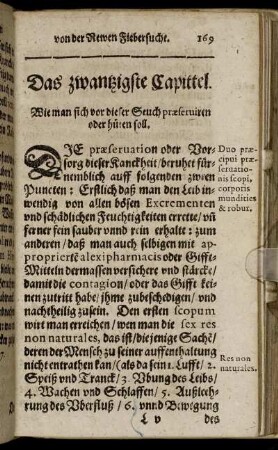 von der Newen Fiebersucht. 169
Das zwantzigste Capittel.
Wie man sich vor dieser Seuch præserviren
oder hüten soll.
DIE præservation oder Vor-
sorg dieser Kranckheit / beruhet für-
nemblich auff folgenden zween
Puncten: Erstlich daß man den Leib in-
wendig von allen bösen Excrementen
und schädlichen Feuchtigkeiten errette / uñ
ferner sein sauber unnd rein erhalt: zum
anderen / daß man auch selbigen mit ap-
propriertẽ alexipharmacis oder Gifft-
Mitteln dermassen versichere und stärcke /
damit die contagion / oder das Gifft kei-
nen zutritt habe / ihme zubeschedigen / und
nachtheilig zusein. Den ersten scopum
wirt man erreichen / wen man die sex res
non naturales, das ist / diejenige Sachẽ /
deren der Mensch zu seiner auffenthaltung
nicht entrathen kan / (als da sein 1. Lufft / 2.
Speiß und Tranck / 3. Vbung des Leibs /
4. Wachen und Schlaffen / 5. Außlech-
rung des Vberfluß / 6. vnnd Bewegung
L v des
Duo præ-
cipui præ-
servatio-
nis scopi,
corporis
mundities
& robur.
Res non
naturales.